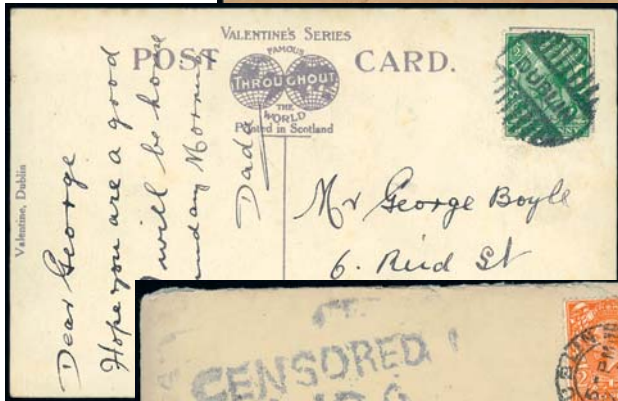 VALENTINE'S SERIES
POST CARD.
FAMOUS
THROUGHOUT
THE
WORLD
Printed in Scotland
DUBLIN
Valentine, Dublin
Dear George
Hope you are a good
will be home
Morning
Dada
Mr George Boyle
6. Reid St
CENSORED